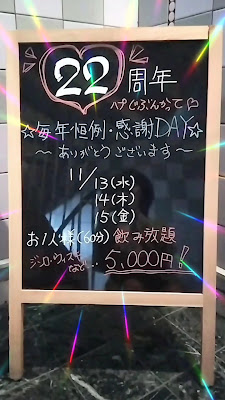 22周年
ペじぶんかって
☆毎年恒例・感謝DAY☆
～ありがとうございます～
11/13(水)
14(木)
15(金)
お1人様(60分)飲み放題
ジンロ・ウィスキー
など… 5,000円!